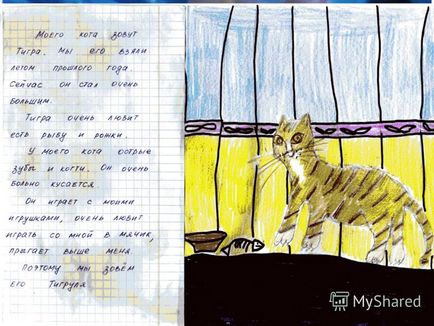 Моего кота зовут
Тигра. Мы его взяли
летом прошлого года.
Сейчас он стал очень
большим.
Тигра очень любит
есть рыбу и рожки.
У моего кота острые
зубы и когти. Он очень
больно кусается.
Он играет с моими
игрушками, очень любит
играть со мной в мячик,
прыгает выше меня.
Поэтому мы зовём
его Тигруля
MyShared